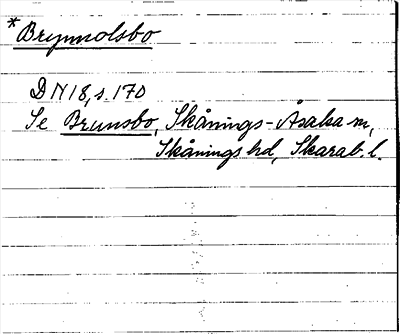 *Brynnolsbo
DN 18, s. 170
Se Brunsbo, Skånings-Åsaka sn,
Skånings hd, Skarab. l.